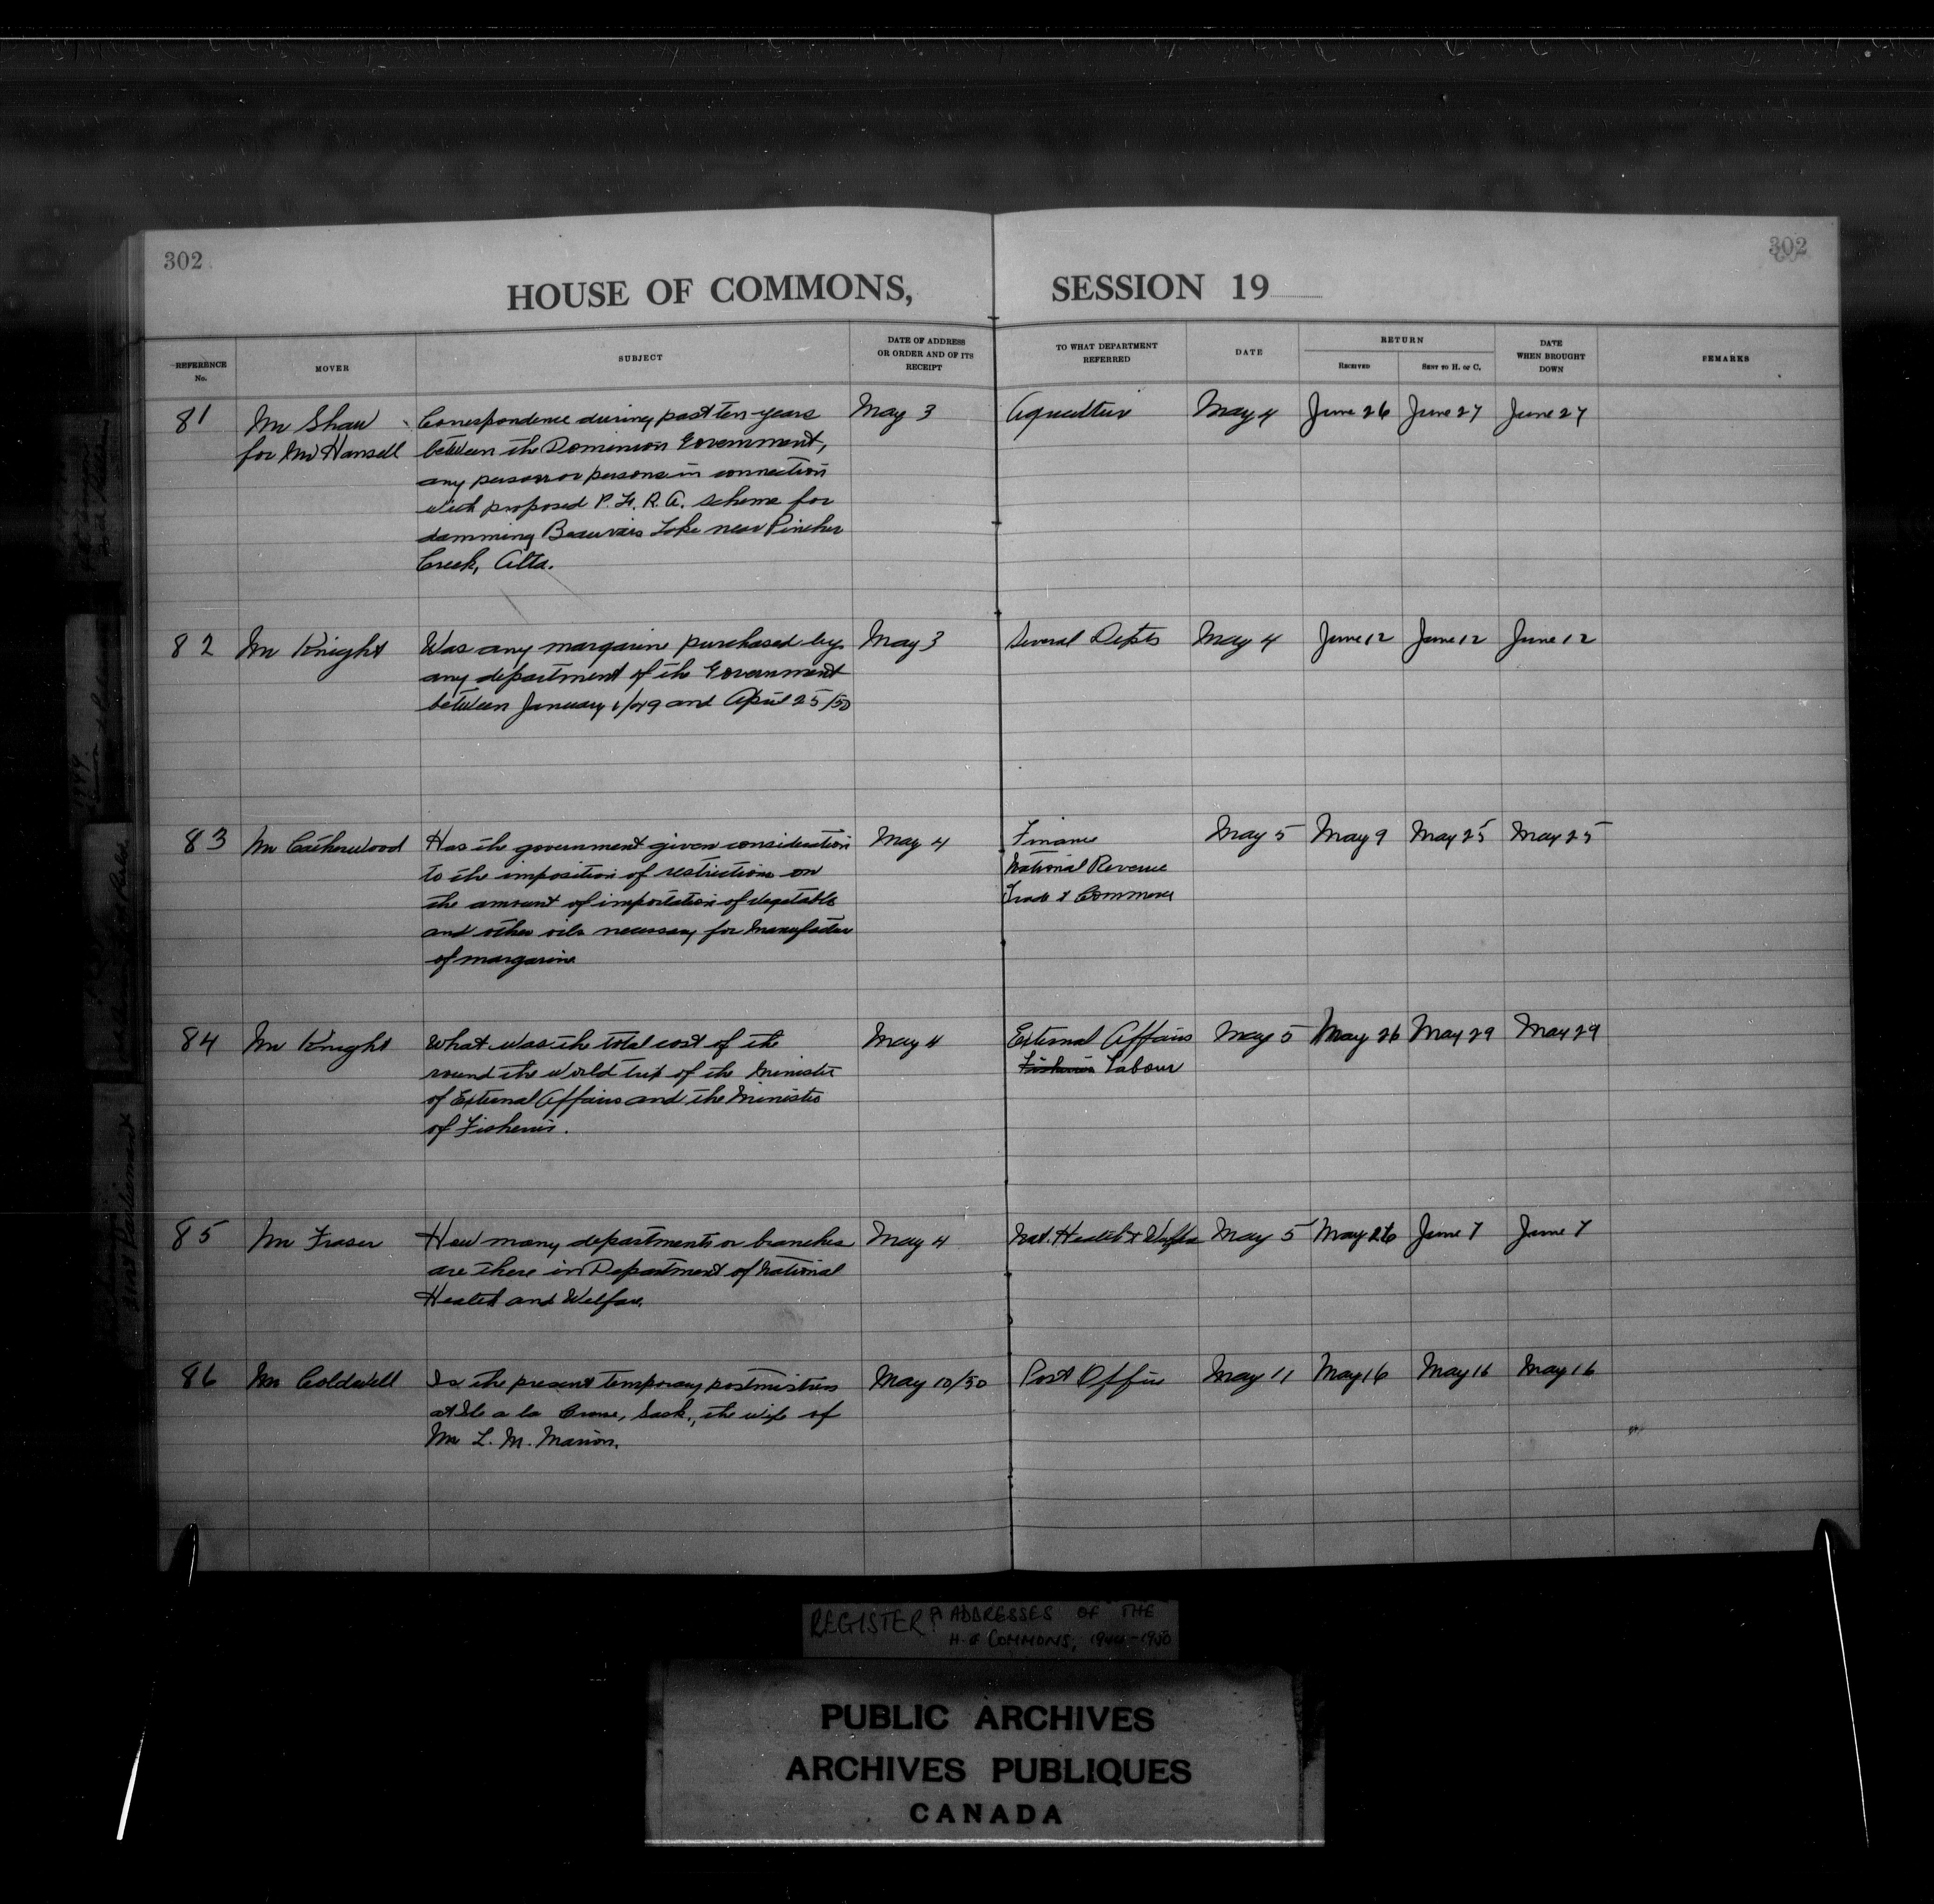 302
302
HOUSE OF COMMONS, SESSION 19
REFERENCE No. MOVER SUBJECT DATE OF ADDRESS OR ORDER AND OF ITS RECEIPT TO WHAT DEPARTMENT REFERRED DATE RETURN RECEIVED SENT TO H. OF C. DATE WHEN BROUGHT DOWN REMARKS
81 Mr Shaw Correspondence during past ten years May 3 Agriculture May 4 June 26 June 27 June 27
for Mr Hansell between the Dominion Government,
any person or persons in connection
with proposed P.F.R.A. scheme for
damming Beauvais Lake near Pincher
Creek, Alta.
82 Mr Knight Was any margarine purchased by May 3 Several Depts May 4 June 12 June 12 June 12
any department of the Government
between January 1/49 and April 25/50
83 Mr Catherwood Has the government given consideration May 4 Finance May 5 May 9 May 25 May 25
to the imposition of restrictions on National Revenue
the amount of importation of vegetable Trade & Commerce
and other oils necessary for manufacture
of margarine
84 Mr Knight What was the total cost of the May 4 External Affairs May 5 May 26 May 29 May 29
round the world trip of the Minister Fisheries Labour
of External Affairs and the Minister
of Fisheries.
85 Mr Fraser How many departments or branches May 4 Nat. Health & Welfare May 5 May 26 June 7 June 7
are there in Department of National
Health and Welfare.
86 Mr Coldwell Is the present temporary postmistress May 10/50 Post Office May 11 May 16 May 16 May 16
at Ile a la Crosse, Sask., the wife of
Mr L. M. Marion.
21st Parliament
REGISTER ADDRESSES OF THE
H. of COMMONS,
PUBLIC ARCHIVES
ARCHIVES PUBLIQUES
CANADA